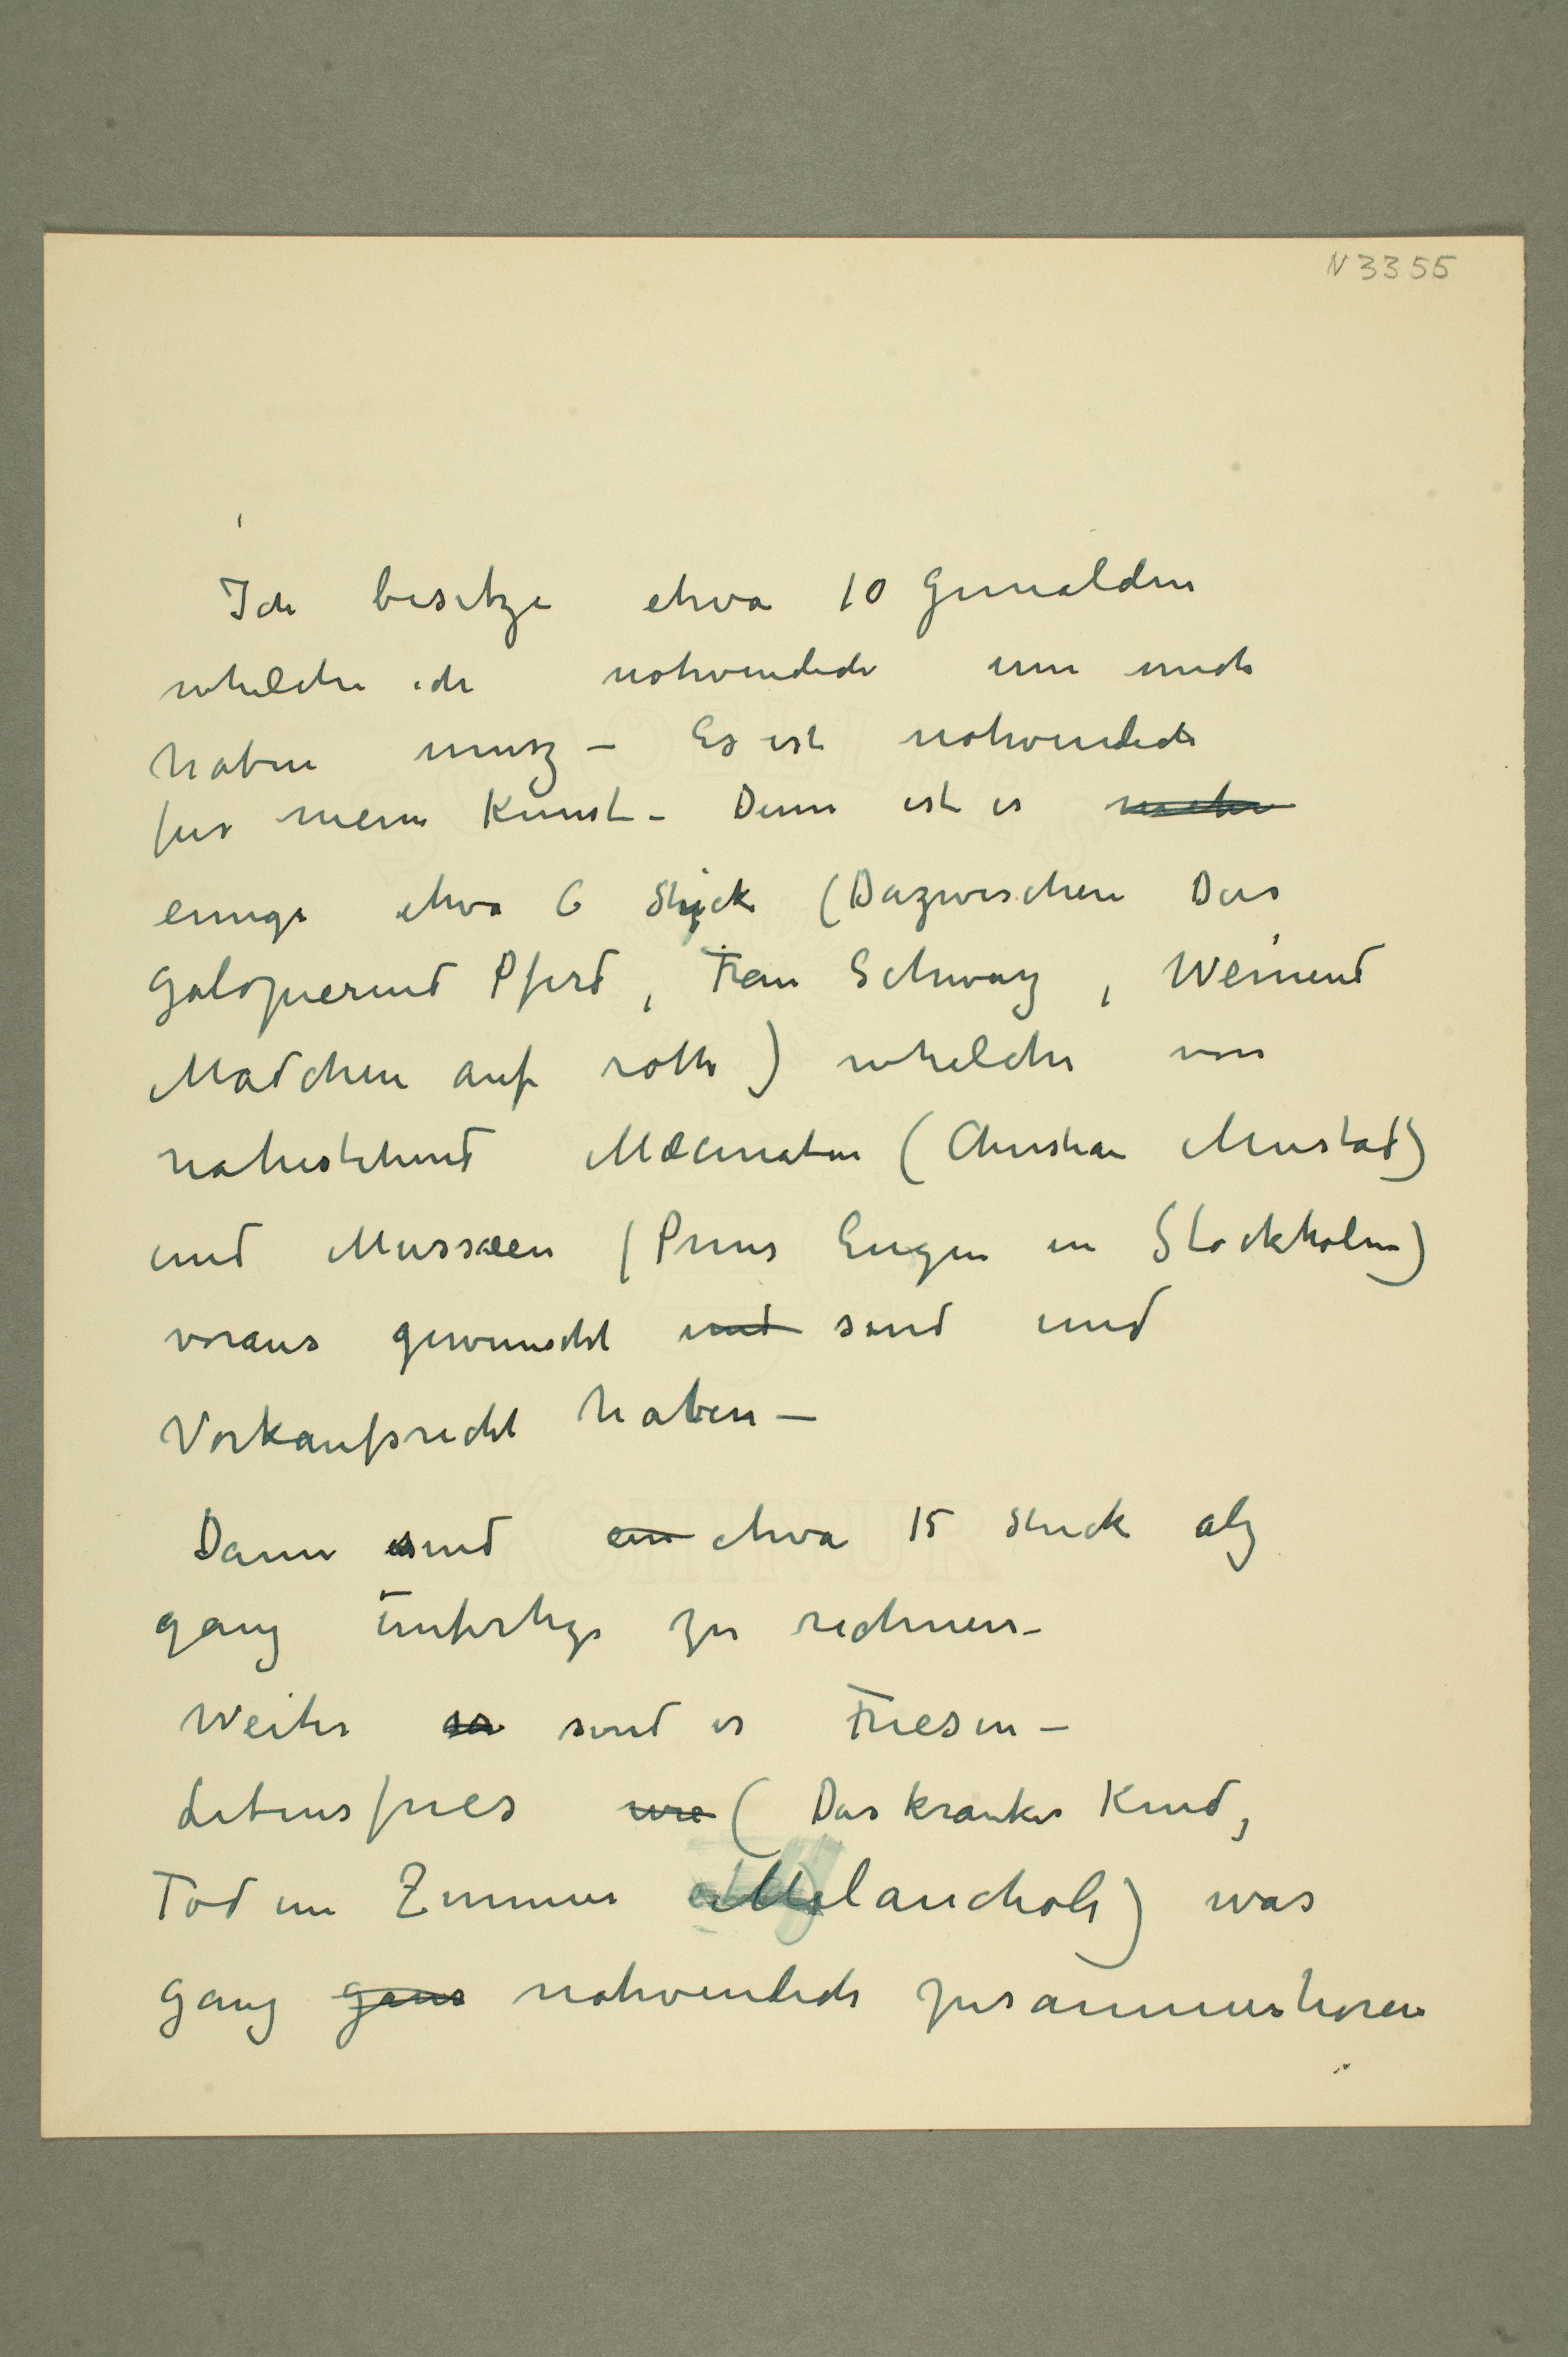 N 3355
Ich besitze etwa 10 Gemälden
whelche ich nohvendich um mich
haben musz – Es ist nohvendich
fur meine Kunst – Denn ist es
einige etwa 6 Stück (Dazwischen Das
galopierend Pferd, Frau Schwarz, Weinend
Mädchen auf roth) whelche von
nahestehend Mæcenaten (Christian Mustad)
und Mussæen (Prins Eugen in Stockholm)
voraus gewunscht und sind und
Vorkaufsrecht haben –
Dann sind ein etwa 15 Stuck alz
ganz unfertige zu rechnen –
Weiter es sind es Friesen –
Lebensfries wie (Das kranke Kind,
Tod im Zimmer Melancholi) was
ganz gans nohvendich zusammenhoren